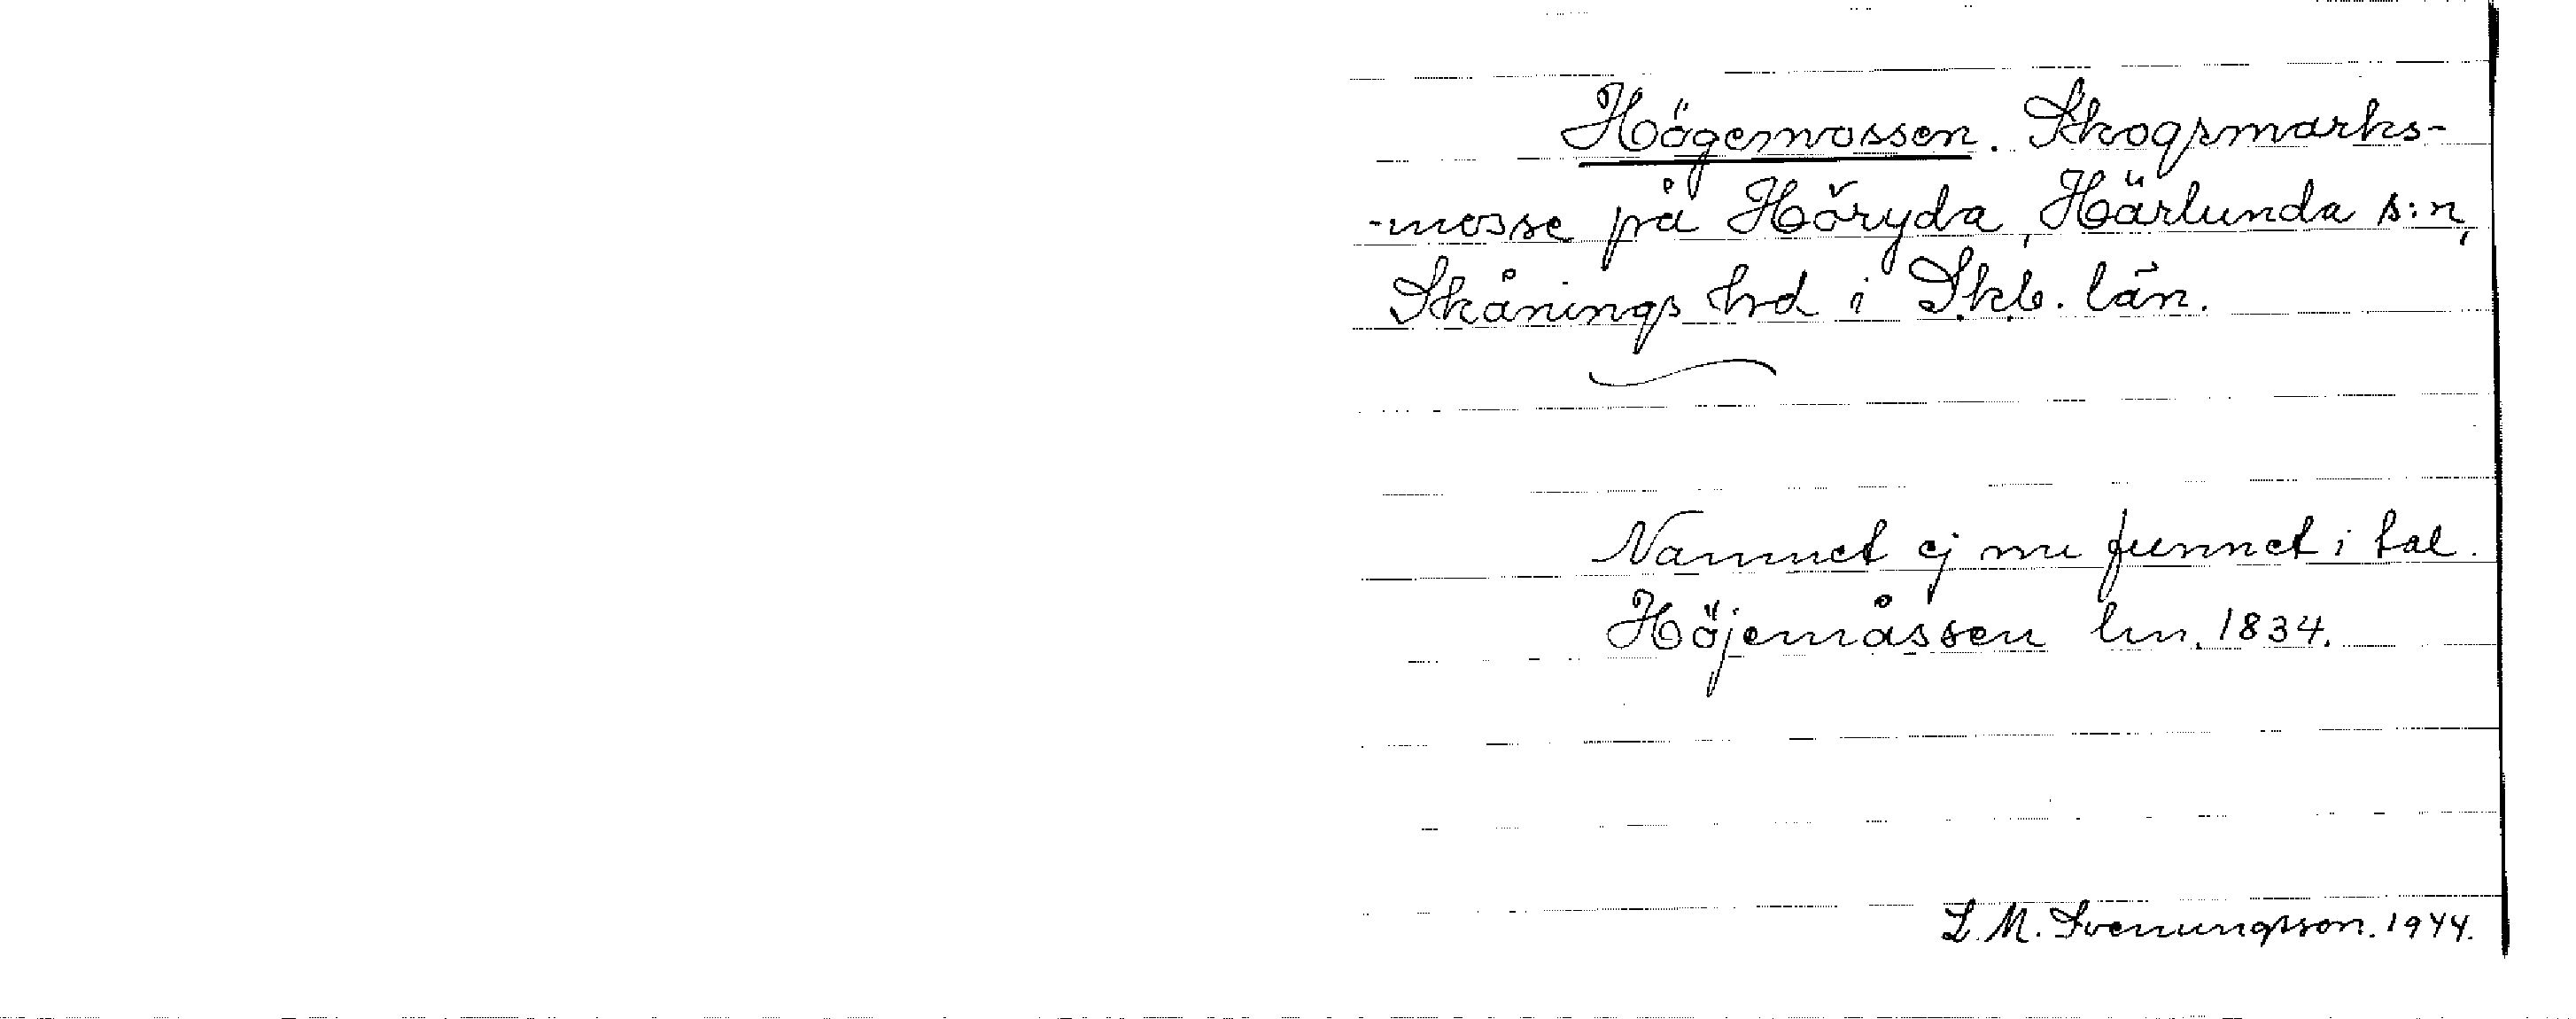 Högemossen. Skogsmarks-
-mosse på Höryda, Härlunda s:n,
Skånings hrd i Skb. län.
Namnet ej nu funnet i tal.
Höjemåssen lm. 1834.
L. M. Svenungsson. 1944.